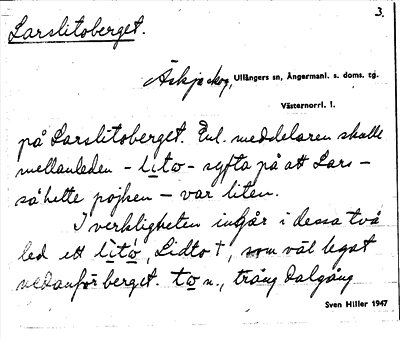 3.
Larslitoberget.
Äskja skog, Ullångers sn, Ångermanl. s. doms. tg.
Västernorrl. l.
på Larslitoberget. Enl. meddelaren skulle
mellanleden - lito - syfta på att Lars -
så hette pojken - var liten.
I verkligheten ingår i dessa två
led ett lito, Lidto †, som väl legat
nedanför berget. to n., trång dalgång
Sven Hiller 1947